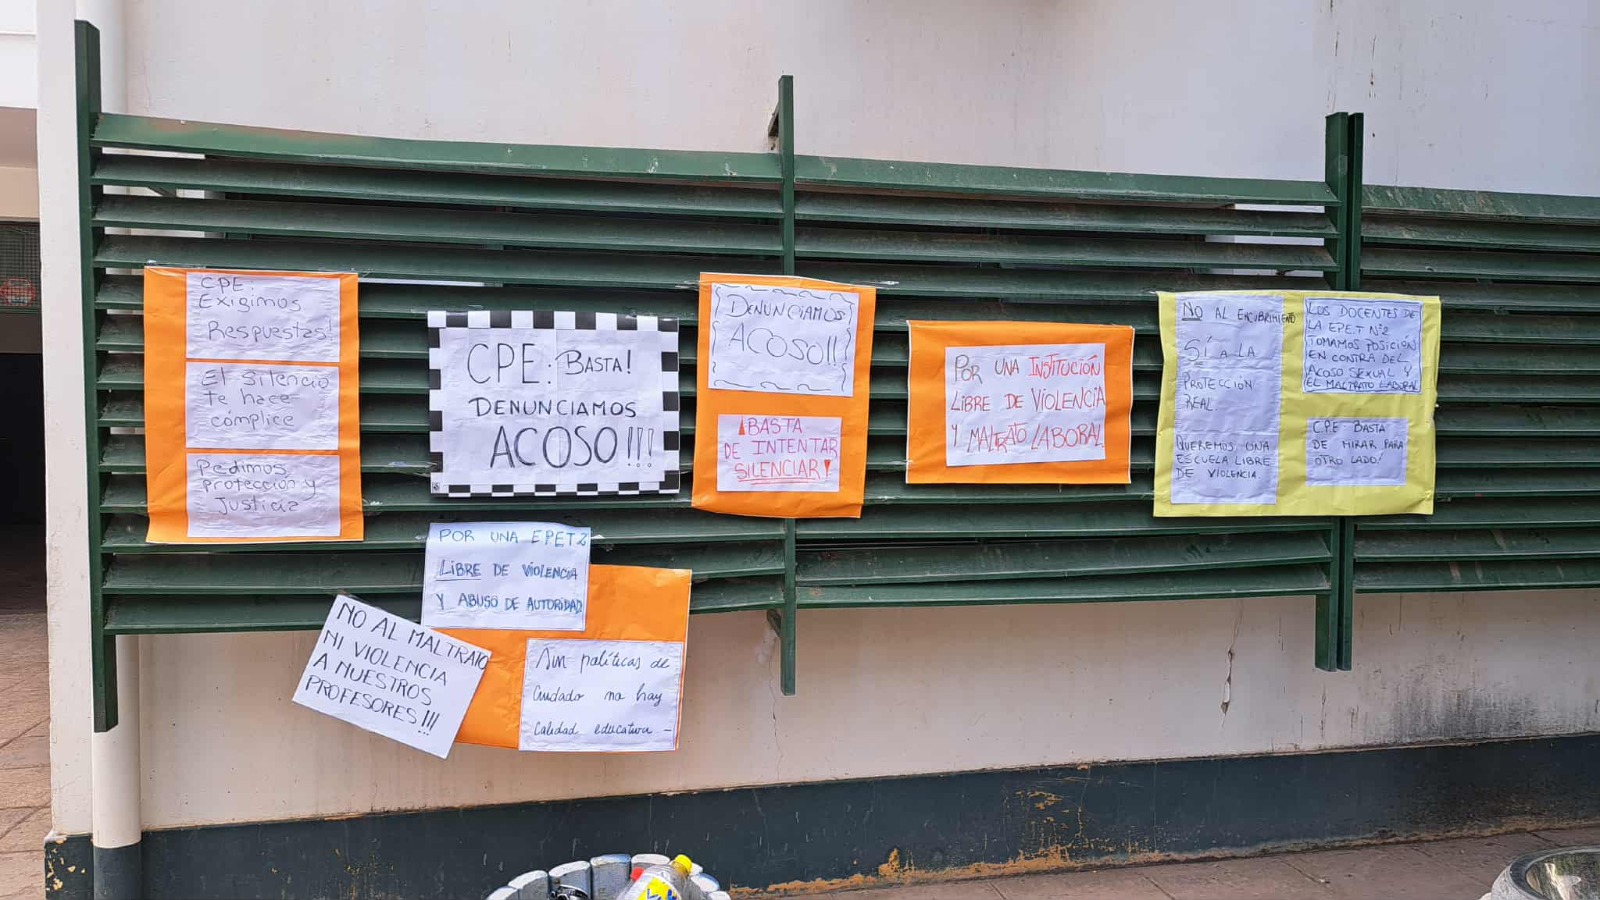 CPE:
Exigimos
Respuestas!
El silencio
te hace
cómplice
Pedimos
protección y
Justicia
CPE: BASTA!
DENUNCIAMOS
ACOSO!!!
DENUNCIAMOS
ACOSO!!!
¡BASTA
DE INTENTAR
SILENCIAR!
POR UNA INSTITUCIÓN
LIBRE DE VIOLENCIA
Y MALTRATO LABORAL.
NO AL ENCUBRIMIENTO
SÍ A LA
PROTECCIÓN
REAL.
QUEREMOS UNA
ESCUELA LIBRE
DE VIOLENCIA.
LOS DOCENTES DE
LA EPE.T Nº2
TOMAMOS POSICIÓN
EN CONTRA DEL
ACOSO SEXUAL Y
EL MALTRATO LABORAL
C.P.E BASTA
DE MIRAR PARA
OTRO LADO!
POR UNA EPET 2
LIBRE DE VIOLENCIA
Y ABUSO DE AUTORIDAD.
NO AL MALTRATO
NI VIOLENCIA
A NUESTROS
PROFESORES!!!
Sin políticas de
Cuidado no hay
Calidad educativa -